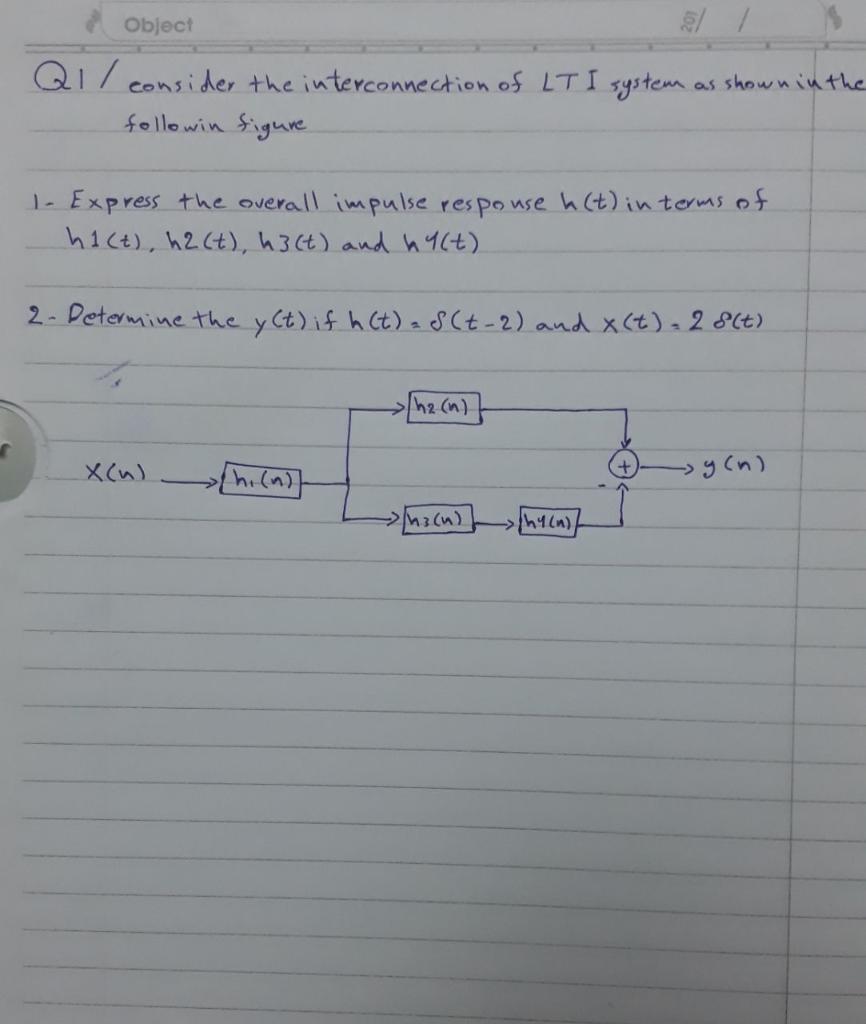 Object 201 / /
Q1/ consider the interconnection of LTI system as shown in the
followin figure
1- Express the overall impulse response h(t) in terms of
h1(t), h2(t), h3(t) and h4(t)
2- Determine the y(t) if h(t) = δ(t-2) and x(t) = 2 δ(t)
h2(n)
x(n) h1(n) + y(n)
-
h3(n) h4(n)